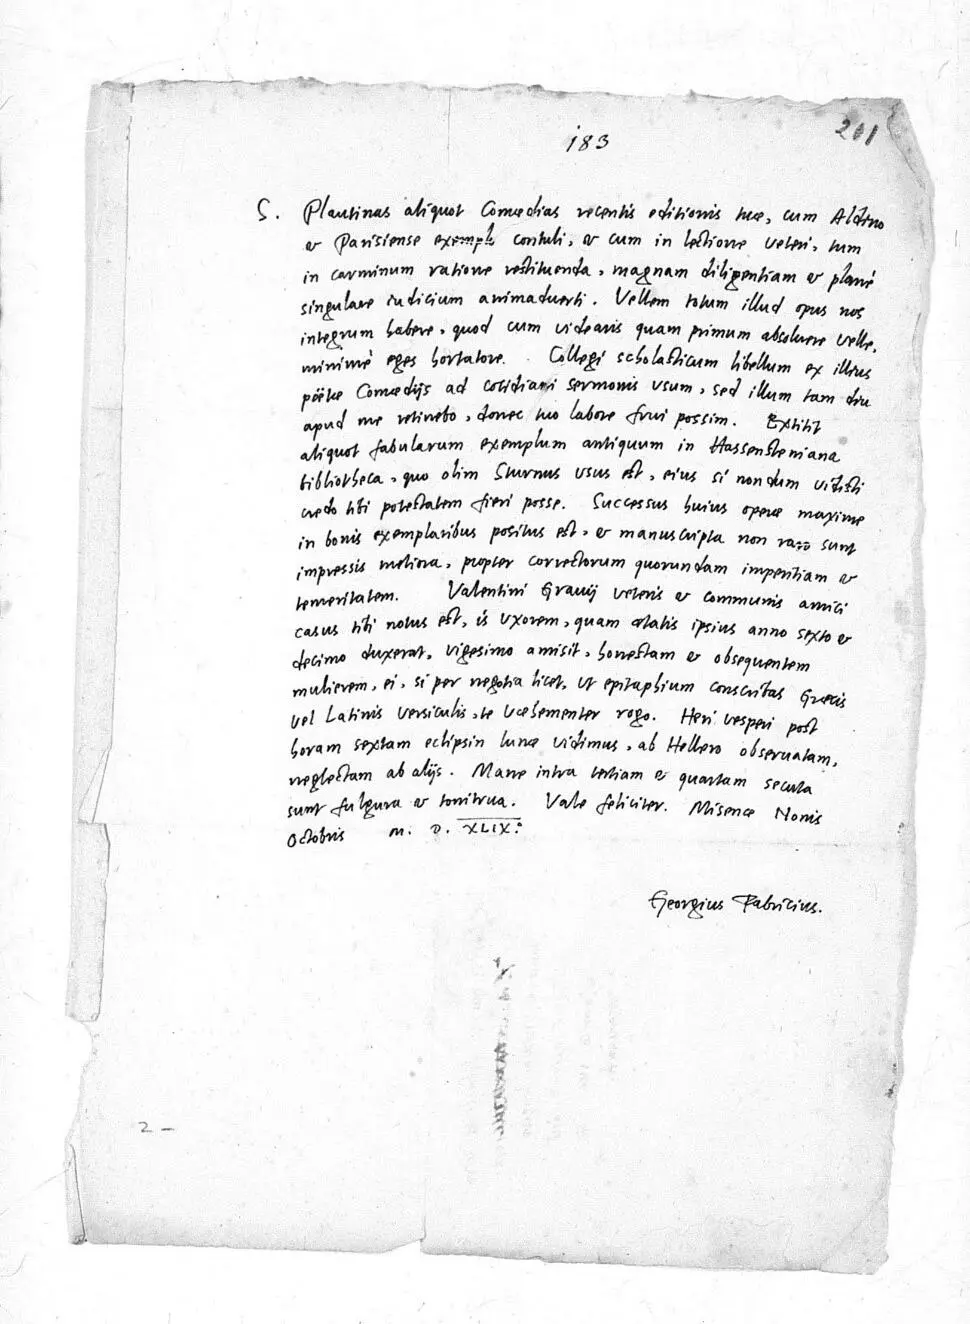 183
201
S. Plautinas aliquot Comœdias recentis editionis tuæ, cum Aldino
& Parisiense exempl contuli, & cum in lectione veteri, tum
in carminum ratione restituenda, magnam diligentiam & planè
singulare iudicium animaduerti. Vellem totum illud opus nos
integrum habere, quod cum videaris quam primum absoluere velle,
minimè eges hortatore. Collegi scholasticum libellum ex illius
poëtæ Comœdijs ad cotidiani sermonis vsum, sed illum tam diu
apud me retinebo, donec tuo labore frui possim. Extitit
aliquot fabularum exemplum antiquum in Hassensteniana
bibliotheca, quo olim Sturnus vsus est, eius si nondum vidisti
credo tibi potestatem fieri posse. Successus huius operæ maxime
in bonis exemplaribus positus est, & manuscripta non raro sunt
impressis meliora, propter correctorum quorundam imperitiam &
temeritatem. Valentini Grauij veteris & communis amici
casus tibi notus est, is vxorem, quam ætatis ipsius anno sexto &
decimo duxerat, vigesimo amisit, honestam & obsequentem
mulierem, ei, si per negotia licet, vt epitaphium conscribas Græcis
vel Latinis versiculis, te vehementer rogo. Heri vesperi post
horam sextam eclipsin lunæ vidimus, ab Hellero obseruatam,
neglectam ab alijs. Mane intra tertiam & quartam secuta
sunt fulgura & tonitrua. Vale feliciter. Misenæ Nonis
Octobris M. D. XLIX.
Georgius Fabricius.
2 -